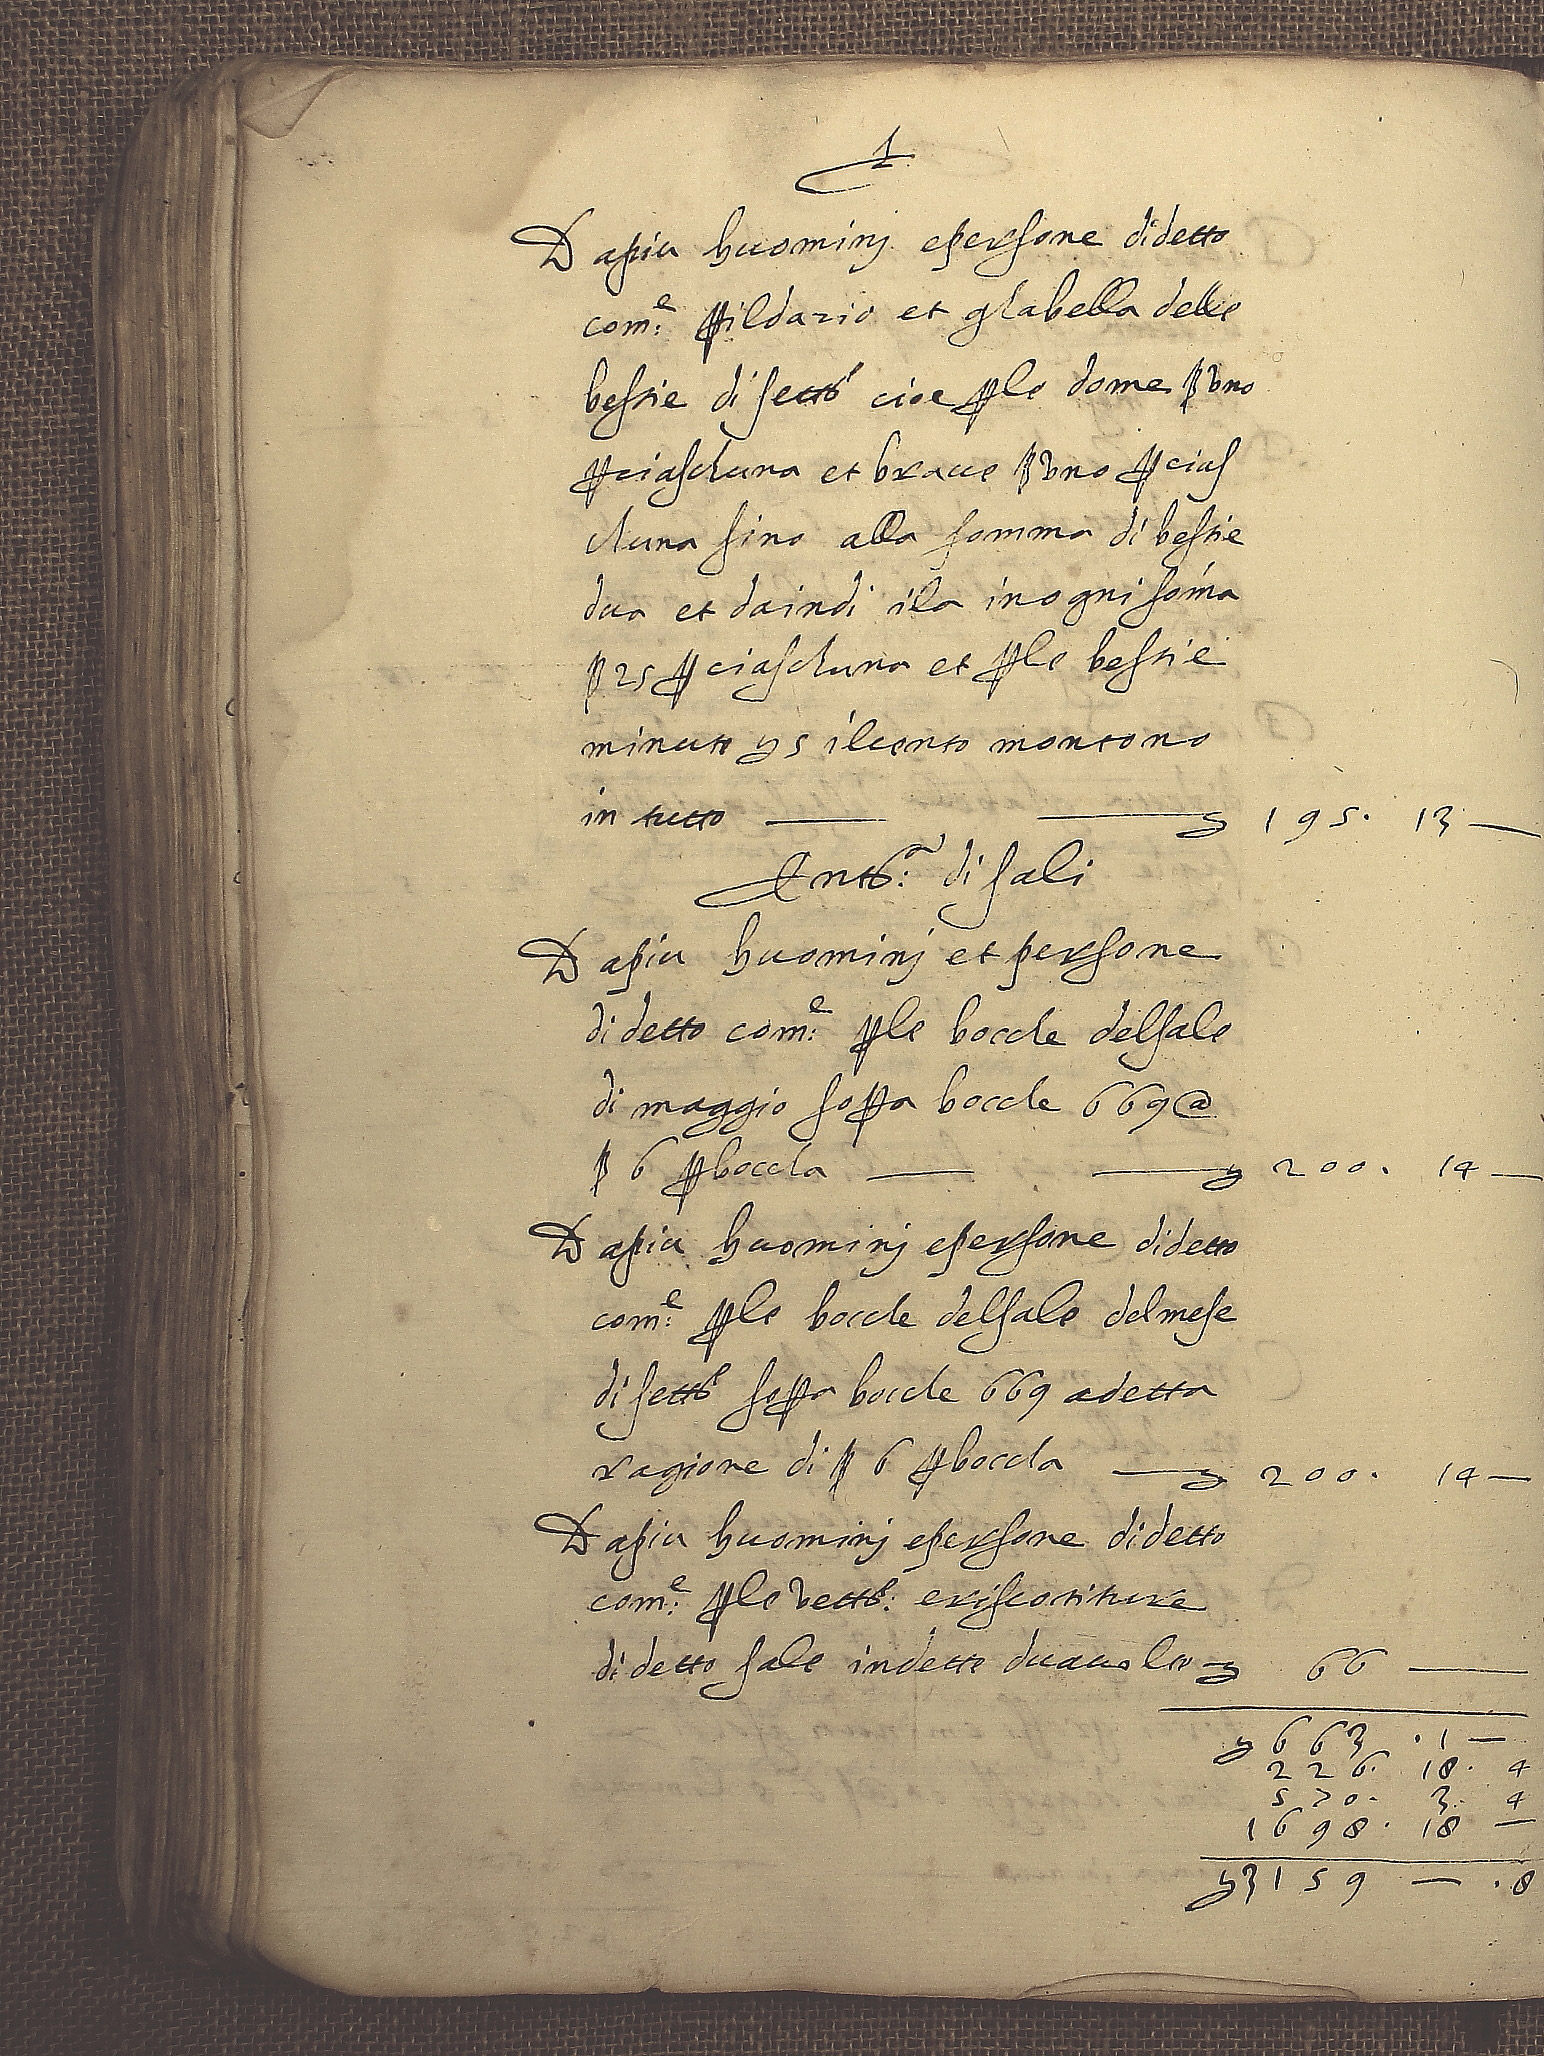 1
Da piu huominj e persone di detto
com.e p il dazio et ghabella delle
bestie di sett.e cioe p le dome ß uno
p ciaschuna et brave ß uno p cias
chuna sino alla somma di bestie
dua et da indi i la in ogni soma
ß 25 p ciaschuna et p le bestie
minute y 5 il cento montono
in tutto — — y 195. 13 —
Entt.a di sali
Da piu huominj et persone
di detto com.e p le bocche del sale
di maggio sopra bocche 669 @
ß 6 p boccha — — y 200. 14 —
Da piu huominj e persone di detto
com.e p le bocche del sale del mese
di sett.e sopra bocche 669 a detta
ragione di ß 6 p boccha — y 200. 14 —
Da piu huominj e persone di detto
com.e p le vett.e: e riscotiture
di detto sale in dette dua volte y 66 —
y 663 . 1 —
226. 18. 4
570. 3. 4
1698. 18 —
y 3159 — . 8